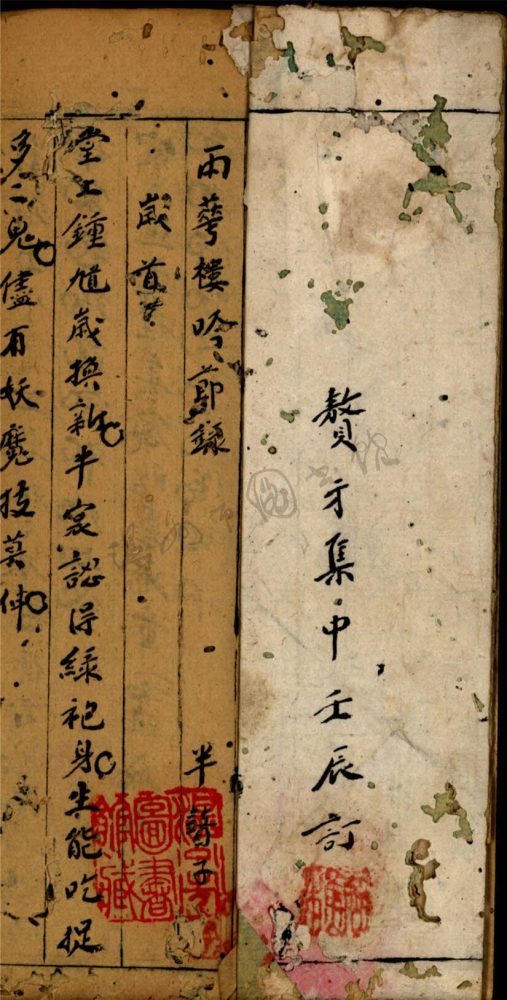 贅方集中壬辰訂
雨華樓吟節錄
半 子
歲首
堂上鍾馗歲換新半窓認得綠袍身生能吃捉
多二鬼儘有妖魔技莫伸
圖書館藏